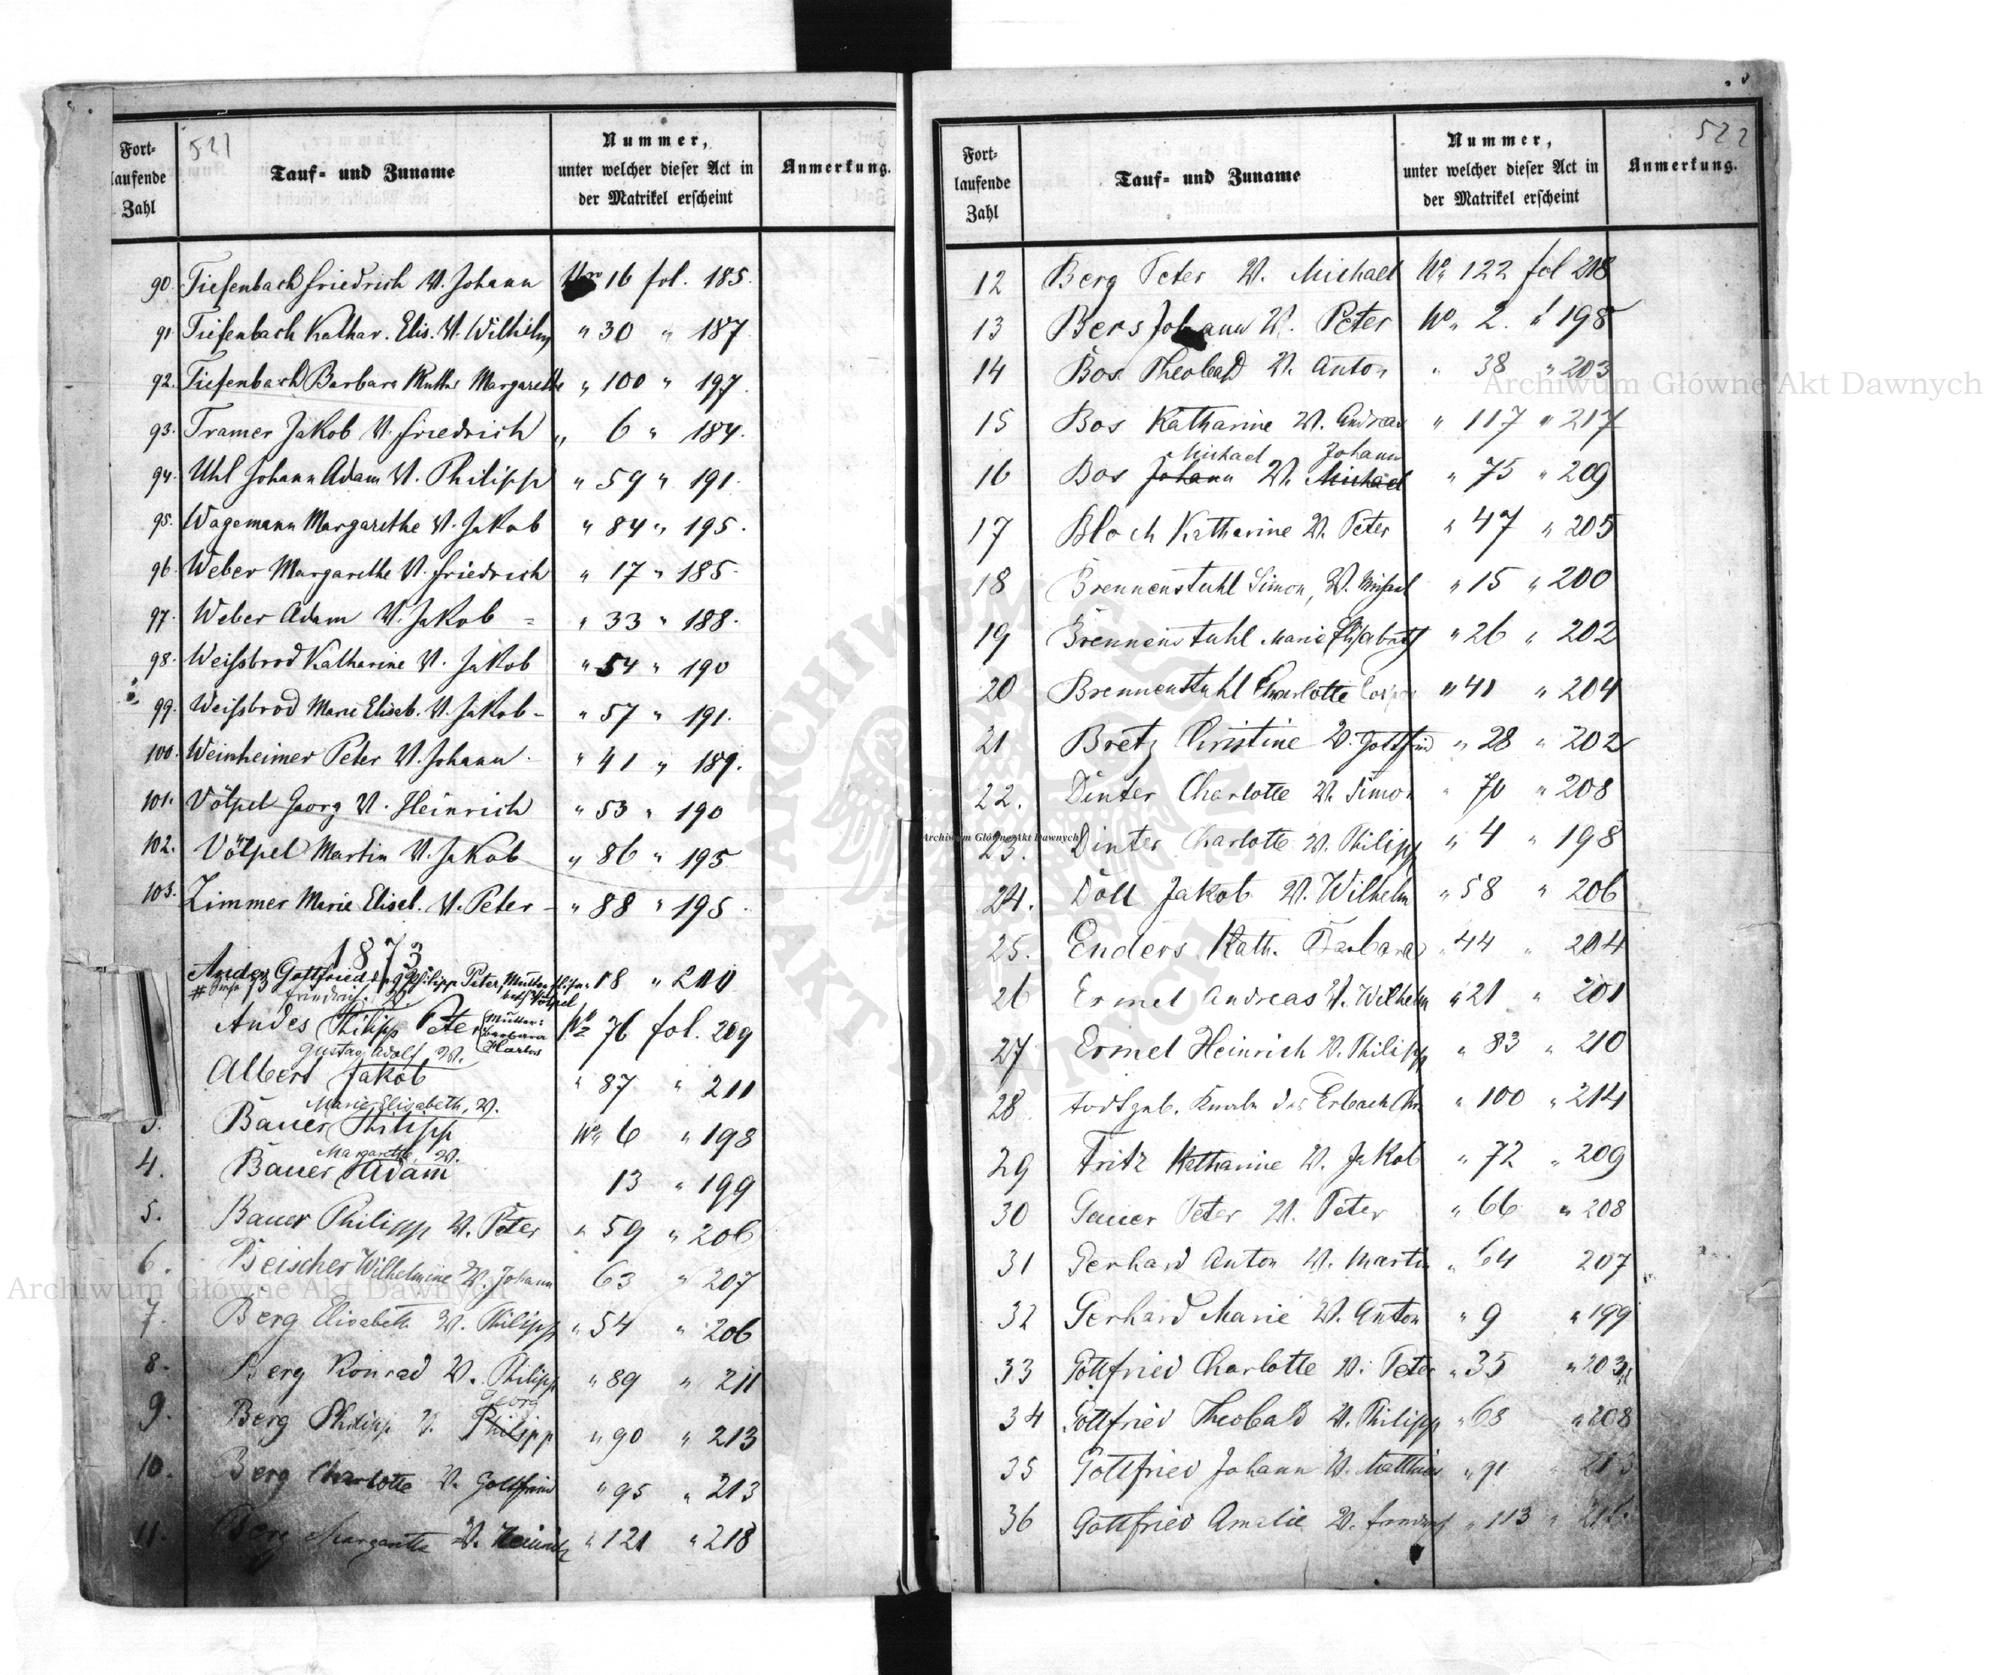 521
Fort-
laufende
Zahl
Tauf- und Zuname
Nummer,
unter welcher dieser Act in
der Matrikel erscheint
Anmerkung.
90. Tiefenbach Friedrich V. Johann Nro 16 fol. 185.
91 Tiefenbach Kathar. Elis. V. Wilhelm " 30 " 187
92. Tiefenbach Barbara Mutter Margarethe " 100 " 197.
93. Tramer Jakob V. Friedrich " 6 " 184.
94. Uhl Johann Adam V. Philipp " 59 " 191.
95. Wagemann Margarethe V. Jakob " 84 " 195.
96. Weber Margarethe V. Friedrich " 17 " 185.
97. Weber Adam V. Jakob = " 33 " 188.
98. Weißbrod Katharine V. Jakob " 54 " 190
99. Weißbrod Marie Elisab. V. Jakob - " 57 " 191.
100. Weinheimer Peter V. Johann. " 41 " 189.
101. Völpel Georg V. Heinrich " 53 " 190
102. Völpel Martin V. Jakob " 86 " 195
103. Zimmer Marie Elisab. V. Peter - " 88 " 195.
1873
Andes Gottfried Philipp Peter, Mutter Völpel 18 " 200
Friedrich V.
Andes Philipp Peter Mutter: Barbara Harlos No 76 fol. 209
Gustav Adolf V.
Albert Jakob " 87 " 211
Marie Elisabeth, V.
3. Bauer Philipp No 6 " 198
Margarethe, V.
4. Bauer Adam 13 " 199
5. Bauer Philipp V. Peter " 59 " 206
6. Beischer Wilhelmine V. Johann 63 " 207
7. Berg Elisabeth V. Philipp " 54 " 206
8. Berg Konrad V. Philipp " 89 " 211
Georg
9. Berg Philipp V. Philipp " 90 " 213
10. Berg Charlotte V. Gottfried " 95 " 213
11. Berg Margaretha V. Heinrich " 121 " 218
522
Fort-
laufende
Zahl
Tauf- und Zuname
Nummer,
unter welcher dieser Act in
der Matrikel erscheint
Anmerkung.
12 Berg Peter V. Michael No 122 fol 218
13 Bers Johann V. Peter No " 2. " 198
14 Bos Theobald V. Anton " 38 " 203
15 Bos Katharine V. Andreas " 117 " 217
Michael Johann
16 Bos Johann V. Michael " 75 " 209
17 Bloch Katharine V. Peter " 47 " 205
18 Brennenstuhl Simon, V. Michael " 15 " 200
19 Brennenstuhl Marie Elisabeth " 26 " 202
20 Brennenstuhl Charlotte " 41 " 204
21 Bretz Christine V. Gottfried " 28 " 202
22. Dinter Charlotte V. Simon " 70 " 208
23. Dinter Charlotte V. Philipp " 4 " 198
24. Döll Jakob V. Wilhelm " 58 " 206
25. Enders Kath. Barbara " 44 " 204
26 Ermel Andreas V. Wilhelm " 21 " 201
27 Ermel Heinrich V. Philipp " 83 " 210
28 todtgeb. Knabe des Erbach " 100 " 214
29 Fritz Katharine V. Jakob " 72 " 209
30 Gauer Peter V. Peter " 66 " 208
31 Gerhard Anton V. Martin " 64 207
32 Gerhard Marie V. Anton " 9 " 199
33 Gottfried Charlotte V. Peter " 35 " 203
34 Gottfried Theobald V. Philipp " 68 " 208
35 Gottfried Johann V. Matthias " 91 " 213
36 Gottfried Amalie V. Friedrich " 113 "
Archiwum Główne Akt Dawnych
Archiwum Główne Akt Dawnych
Archiwum Główne Akt Dawnych
ARCHIWUM GŁÓWNE AKT DAWNYCH